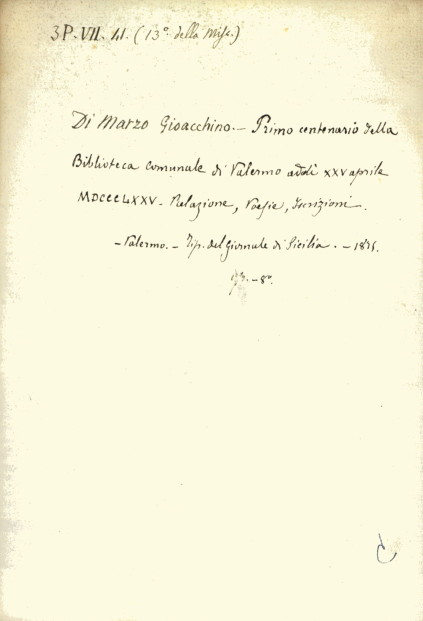 3P. VII. 11. (13º della Misc.)
Di Marzo Gioacchino. — Primo centenario della
Biblioteca comunale di Palermo addì XXV aprile
MDCCCLXXV. Relazione, Poesie, Iscrizioni.
— Palermo. — Tip. del Giornale di Sicilia. — 1875.
— 8º.